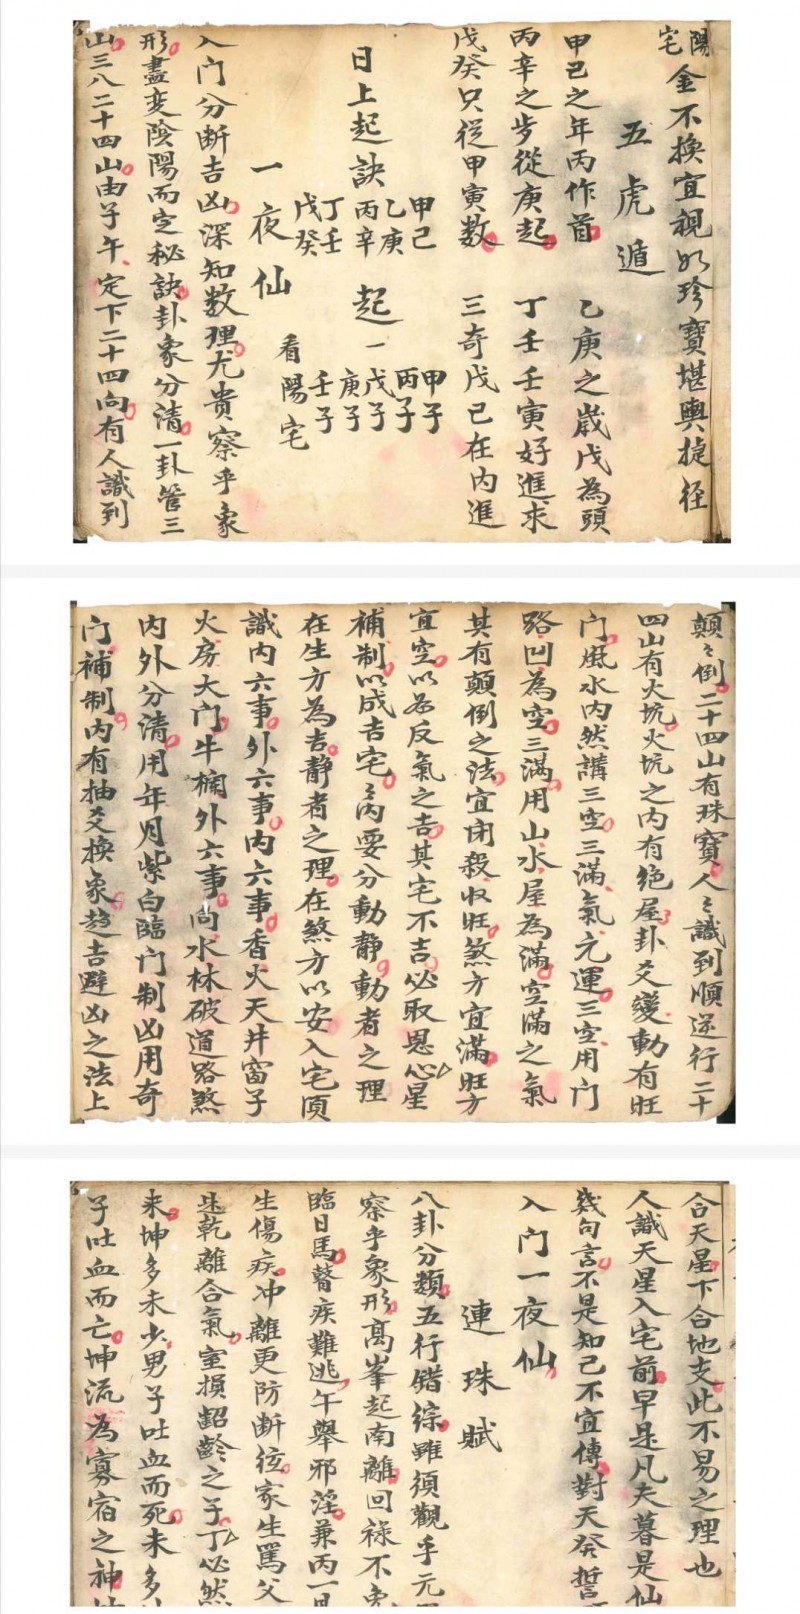 陽宅金不換宜視如珍寶堪輿捷徑
五虎遁
甲己之年丙作首 乙庚之歲戊為頭
丙辛之步從庚起 丁壬壬寅好進求
戊癸只從甲寅數 三奇戊己在內進
日上起訣 甲己 乙庚 丙辛 丁壬 戊癸 起 甲子 丙子 一戊子 庚子 壬子
一夜仙 看陽宅
入門分断吉凶深知数理尤貴察乎象
形盡变陰陽而定秘訣卦象分清一卦管三
山三八二十四山由子午定下二十四向有人識到
顛々倒二十四山有珠寶人々識到順逆行二十
四山有火坑火坑之內有绝屋卦爻變動有旺
門風水内然講三空三滿氣元運三空用門
路凹為空三滿用山水屋為滿空滿之氣
其有顛倒之法宜闭殺收旺煞方宜滿旺方
宜空以為反氣之吉其宅不吉必取恩心星
補制以成吉宅々内要分動静動者之理
在生方為吉静者之理在煞方以安入宅須
識内六事外六事内六事香火天井窗子
火房大门牛欄外六事向水林破道路煞
内外分清用年月紫白臨门制凶用奇
门補制内有抽爻换象趋吉避凶之法上
合天星下合地支此不易之理也
人識天星入宅前早是凡夫暮是仙
幾句言不是知己不宜傳對天癸誓
入门一夜仙
連珠賦
八卦分類五行错綜雖須觀乎元
察乎象形高峯起南離回禄不免
臨日馬瞽疾難逃午舉邪淫兼丙一
生傷疾冲離更防断弦家生罵父
迷乾離合氣室損齠齡之子丁必然
来坤多未少男子吐血而死未多
子吐血而亡坤流為寡宿之神